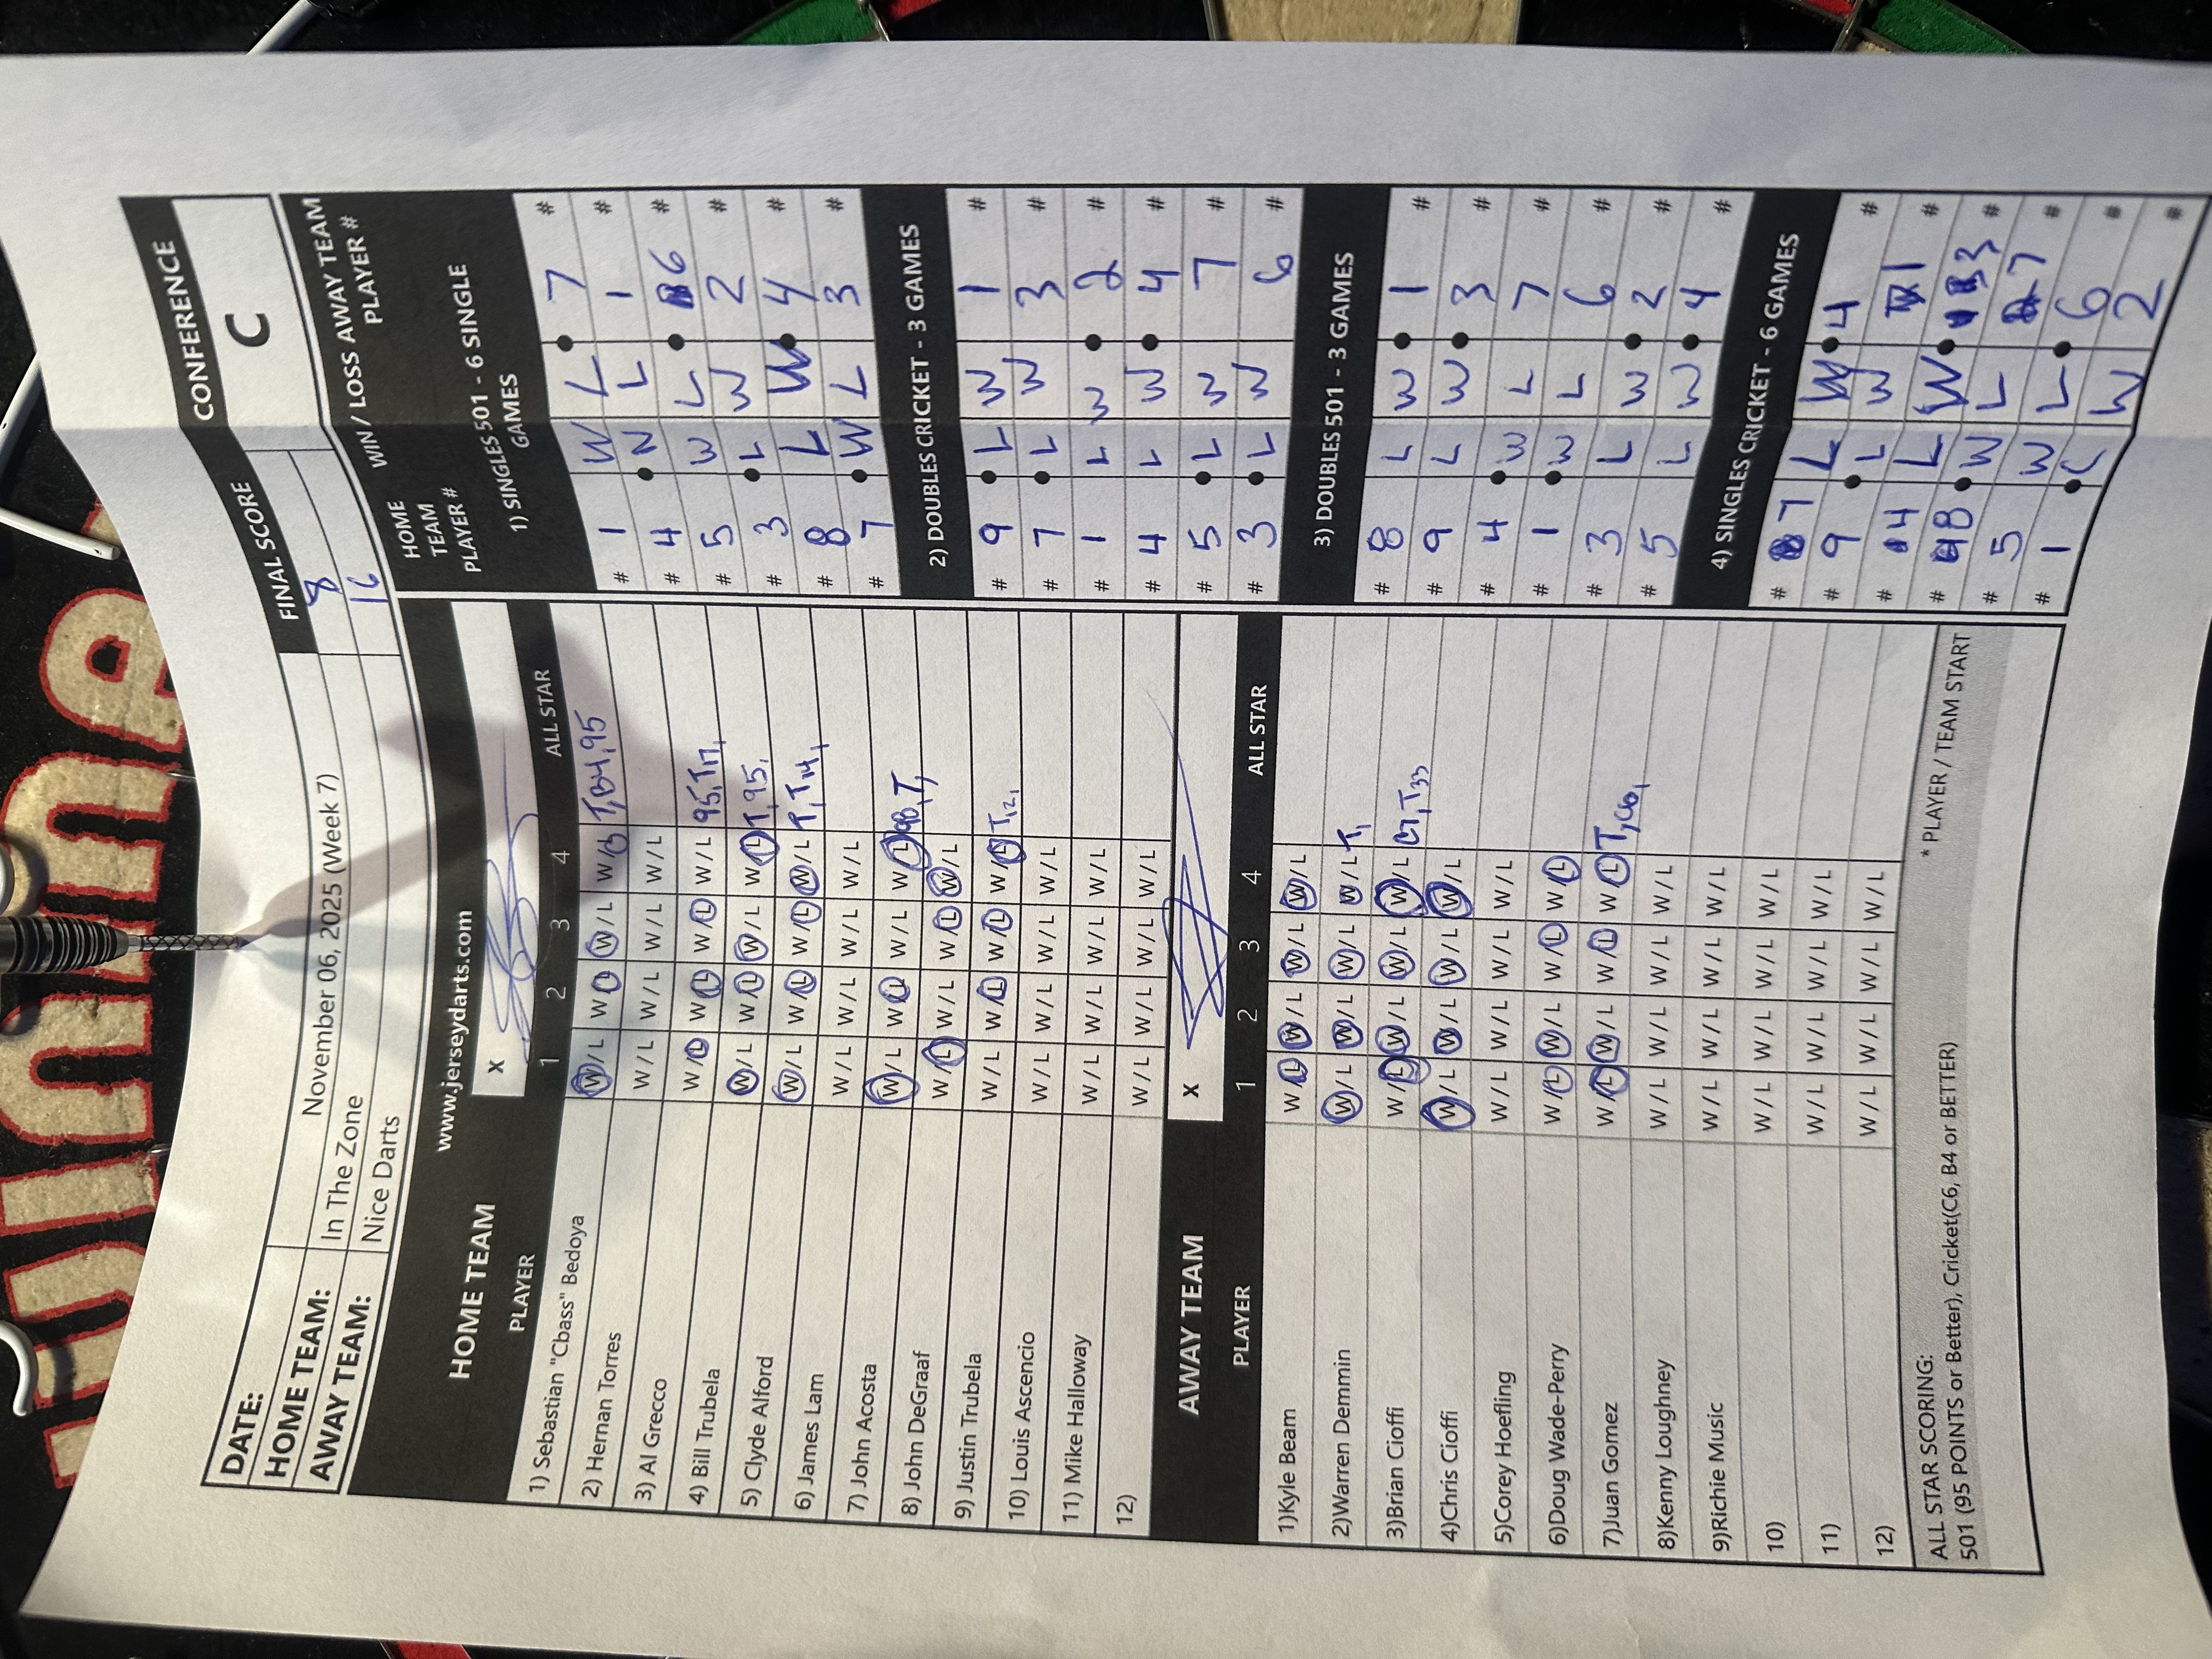 DATE: November 06, 2025 (Week 7)
FINAL SCORE
CONFERENCE
HOME TEAM: In The Zone 8
C
AWAY TEAM: Nice Darts 16
www.jerseydarts.com
HOME TEAM X
PLAYER 1 2 3 4 ALL STAR
1) Sebastian "Cbass" Bedoya W/L W/L W/L W/L T, B4, 95
2) Hernan Torres W/L W/L W/L W/L
3) Al Grecco W/L W/L W/L W/L 95, T17,
4) Bill Trubela W/L W/L W/L W/L T, 95,
5) Clyde Alford W/L W/L W/L W/L T, T14,
6) James Lam W/L W/L W/L W/L
7) John Acosta W/L W/L W/L W/L 98, T,
8) John DeGraaf W/L W/L W/L W/L
9) Justin Trubela W/L W/L W/L W/L T, 121,
10) Louis Ascencio W/L W/L W/L W/L
11) Mike Halloway W/L W/L W/L W/L
12) W/L W/L W/L W/L
AWAY TEAM X
PLAYER 1 2 3 4 ALL STAR
1)Kyle Beam W/L W/L W/L W/L
2)Warren Demmin W/L W/L W/L W/L T,
3)Brian Cioffi W/L W/L W/L W/L T33
4)Chris Cioffi W/L W/L W/L W/L
5)Corey Hoefling W/L W/L W/L W/L
6)Doug Wade-Perry W/L W/L W/L W/L
7)Juan Gomez W/L W/L W/L W/L T,
8)Kenny Loughney W/L W/L W/L W/L
9)Richie Music W/L W/L W/L W/L
10) W/L W/L W/L W/L
11) W/L W/L W/L W/L
12) W/L W/L W/L W/L
ALL STAR SCORING: * PLAYER / TEAM START
501 (95 POINTS or Better), Cricket(C6, B4 or BETTER)
HOME TEAM PLAYER #
WIN / LOSS
AWAY TEAM PLAYER #
1) SINGLES 501 - 6 SINGLE GAMES
# 1 W L 7 #
# 4 W L 1 #
# 5 W L 6 #
# 3 L W 2 #
# 8 L W 4 #
# 7 W L 3 #
2) DOUBLES CRICKET - 3 GAMES
# 9 L W 1 #
# 7 L W 3 #
# 1 L W 2 #
# 4 L W 4 #
# 5 L W 7 #
# 3 L W 6 #
3) DOUBLES 501 - 3 GAMES
# 8 L W 1 #
# 9 L W 3 #
# 4 W L 7 #
# 1 W L 6 #
# 3 L W 2 #
# 5 L W 4 #
4) SINGLES CRICKET - 6 GAMES
# 7 L W 4 #
# 9 L W 1 #
# 4 L W 3 #
# 8 W L 7 #
# 5 W L 6 #
# 1 L W 2 #